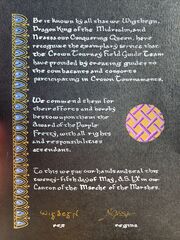 Be it known by all that we Wigthegn,
Dragon King of the Midrealm, and
Nezsa our Conquering Queen, here
recognize the exemplary service that
the Crown Tourney Field Guide Team
have provided by creating guides to
the combatants and consorts
participating in Crown Tournaments.
We commend them for
their efforts and hereby
bestow upon them the
Award of the Purple
Fretty, with all rights
and responsibilities
attendant.
To this we put our hands and seal this
twenty-fifth day of May, A.S. LX in our
Canton of the Marche of the Marshes.
rex
regina